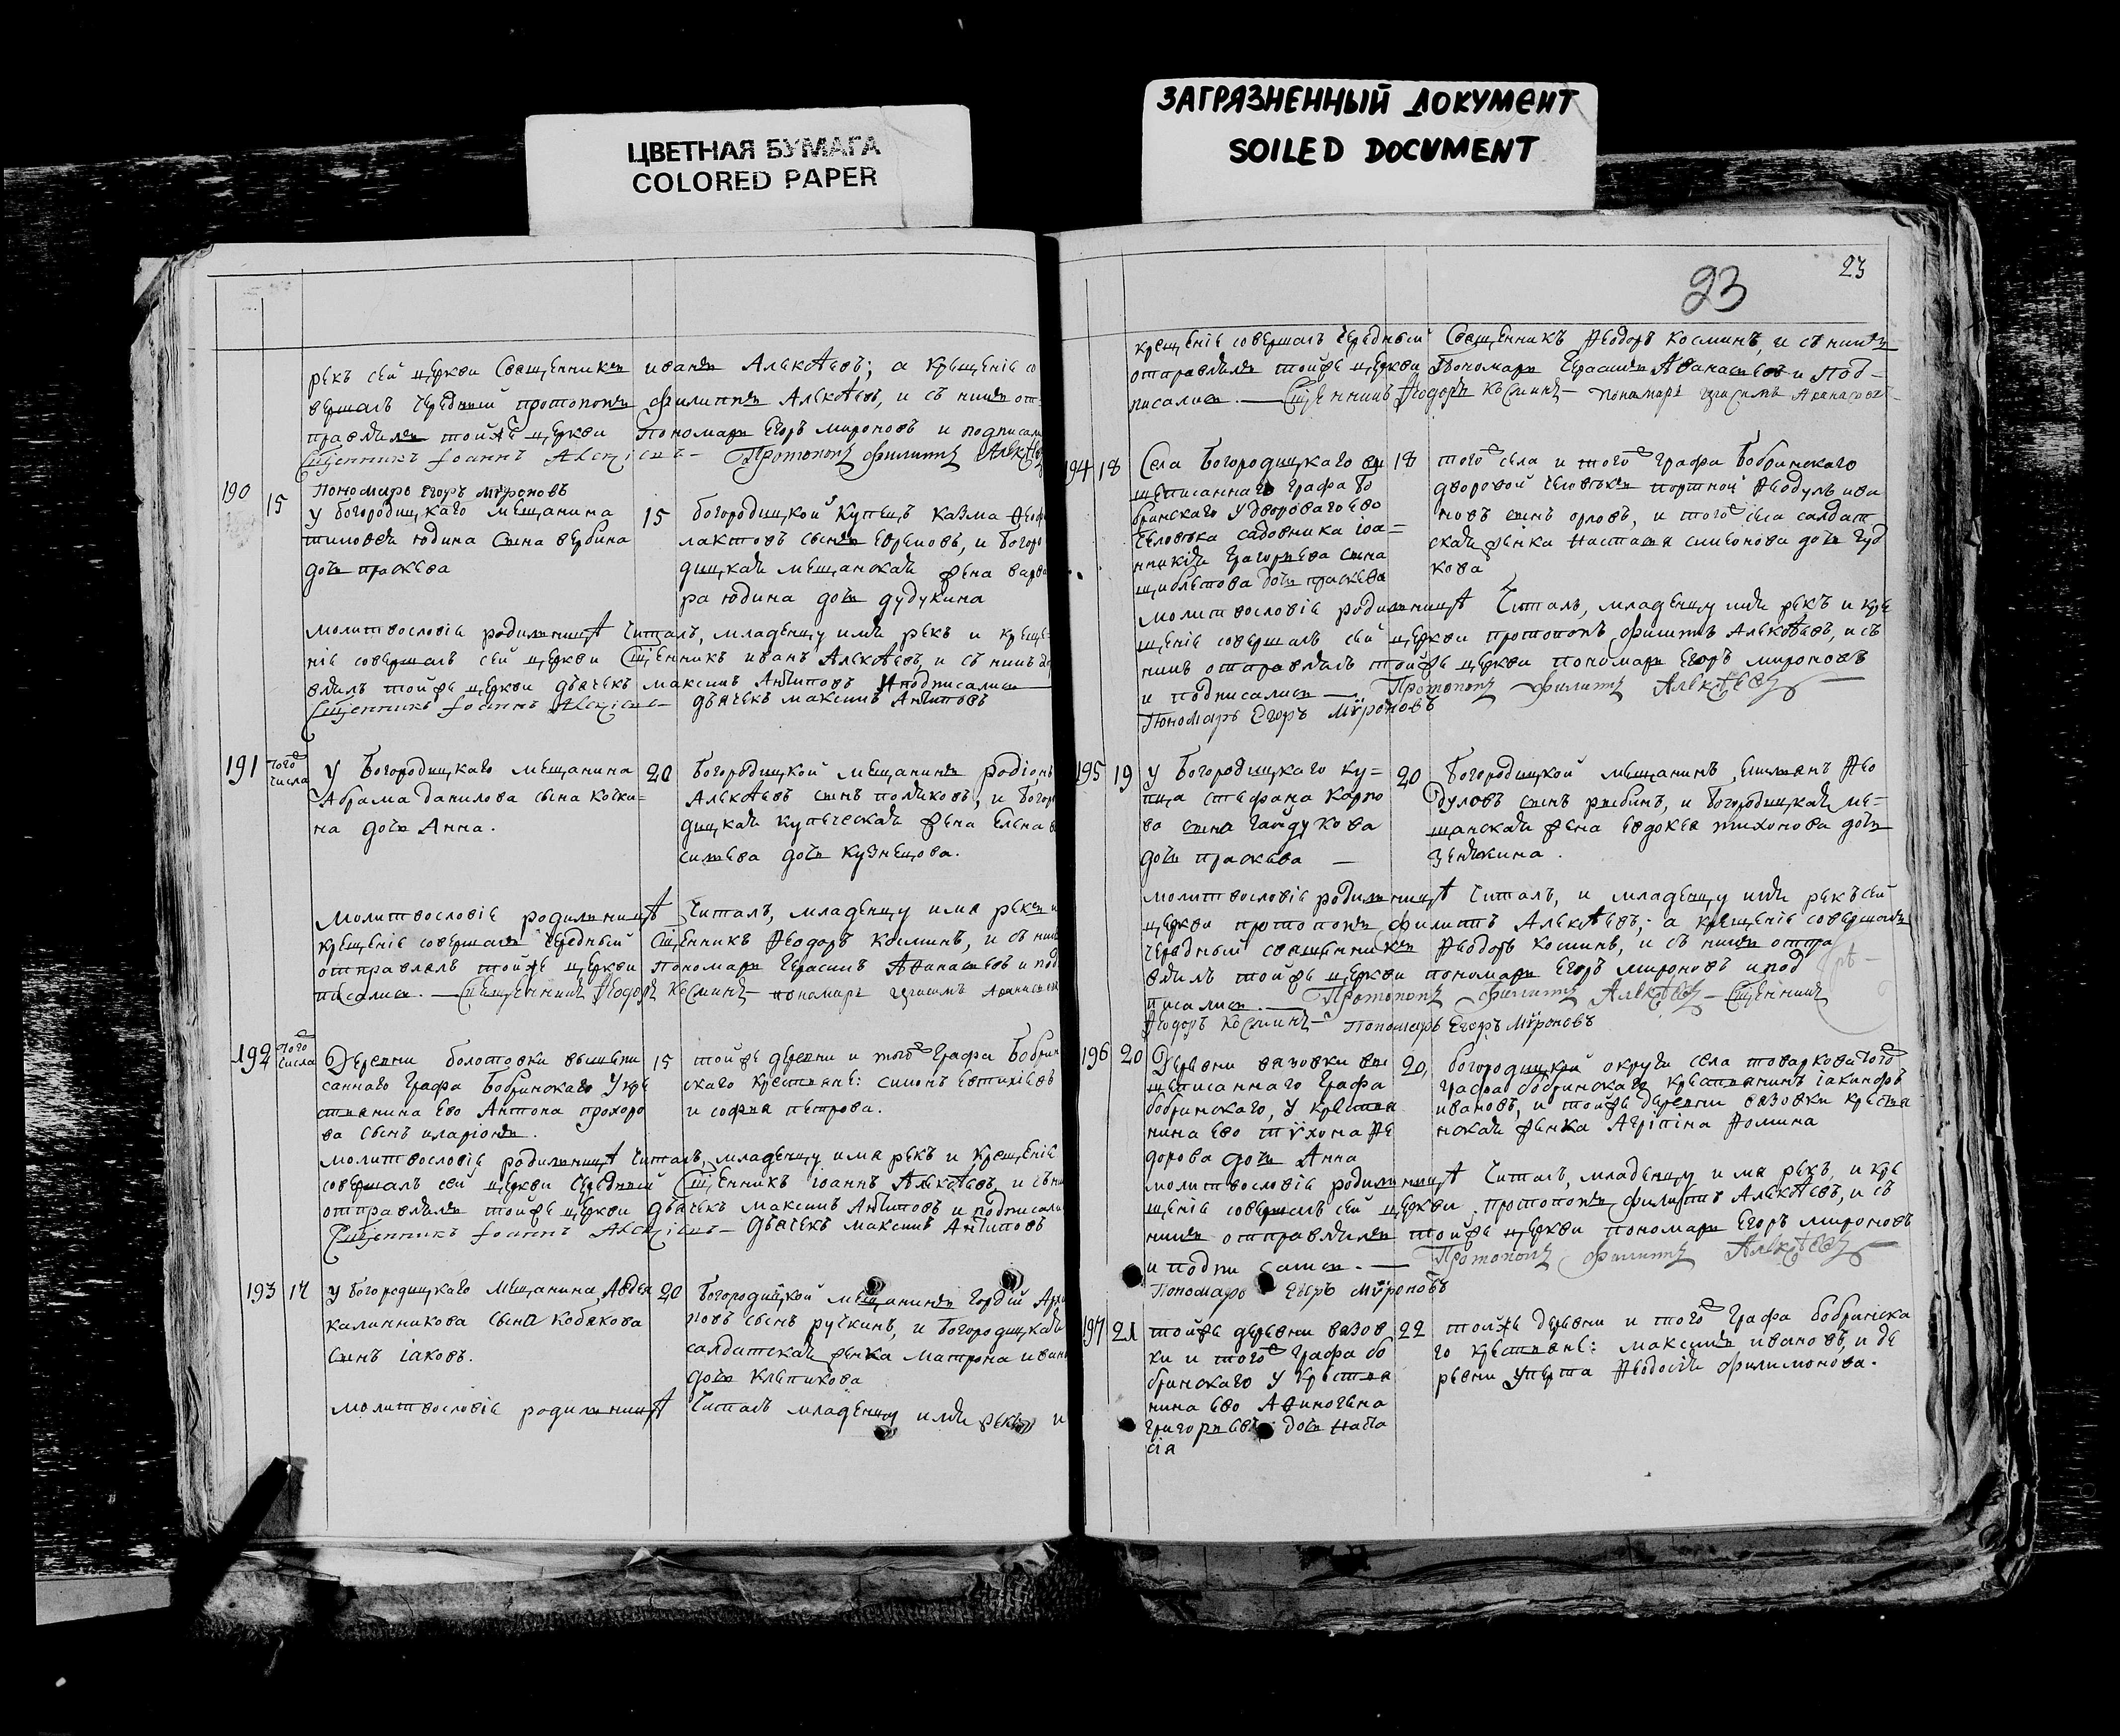 ЦВЕТНАЯ БУМАГА
COLORED PAPER
ЗАГРЯЗНЕННЫЙ ДОКУМЕНТ
SOILED DOCUMENT
рекъ сей церкви Священникъ иванъ Алексѣевъ; а крещеніе со
вершалъ чередный протопопъ филиппъ Алексѣевъ, и съ нимъ от
правлялъ тойже церкви Пономарь Егоръ мироновъ и подписали
Священникъ Іоаннъ Алексіевъ - Протопопъ Филиппъ Алексѣевъ
Пономарь Егоръ Мѵроновъ
190 15 у богородицкаго мещанина 15 богородицкой купецъ казма
юдина сына вербина
лактовъ сынъ евреиновъ, и богоро
дочь праскева
дицкая мещанская жена варва
ра юдина дочь дудукина
молитвословіе родильницѣ читалъ, младенцу имя рекъ и креще
ніе совершалъ сей церкви Священникъ иванъ Алексѣевъ, и съ нимъ
тойже церкви дьячекъ максимъ Антиповъ и подписались
Священникъ Іоаннъ Алексіевъ - дьячекъ максимъ Антиповъ
191 того числа У Богородицкаго мещанина 20 богородицкой мещанинъ родіонъ
Абрама данилова сына кочки=
на дочь Анна.
Алексѣевъ сынъ поляковъ, и богоро
дицкая купеческая жена Елена
дочь кузнецова.
молитвословіе родильницѣ читалъ, младенцу имя рекъ и
крещеніе совершалъ чередный Священникъ Ѳеодоръ косминъ, и съ нимъ
отправлялъ тойже церкви пономарь Герасимъ Аѳанасьевъ и под
писались. — Священникъ Ѳеодоръ Косминъ - пономарь герасимъ Аѳанасьевъ
192 того числа Деревни болотовки вышепи 15 тойже деревни и того графа Бобрин
саннаго графа бобринскаго у кре
стьянина ево Антона прохоро
ва сынъ иларіонъ.
скаго крестьяне: симонъ евтихіевъ
и софья петрова.
молитвословіе родильницѣ читалъ, младенцу имя рекъ и крещеніе
совершалъ сей церкви чередный Священникъ іоаннъ Алексѣевъ, и съ ни
отправлялъ тойже церкви дьячекъ максимъ Антиповъ и подписали
Священникъ Іоаннъ Алексіевъ - дьячекъ максимъ Антиповъ
193 17 у богородицкаго мещанина Авдея 20 богородицкой мещанинъ гордій Архи
калинникова сына кобякова
сынъ іаковъ.
повъ сынъ ручкинъ, и богородицкая
салдатская женка матрона иван
дочь клепикова
молитвословіе родильницѣ читалъ младенцу имя рекъ и
23
23
крещеніе совершалъ чередный Священникъ Ѳеодоръ косминъ, и съ нимъ
отправлялъ тойже церкви Пономарь Герасимъ Аѳанасьевъ и Под-
писались. — Священникъ Ѳеодоръ Косминъ - пономарь герасимъ Аѳанасьевъ
194 18 Села Богородицкаго вы 18 того села и того графа Бобринскаго
шеписаннаго графа бо
бринскаго у двороваго ево
человека садовника іоа=
нникія григорьева сына
дочь праскева
дворовой человекъ портной Ѳеодулъ ива
новъ сынъ орловъ, и того села салдат
ская женка настасья симеонова дочь гуд
кова
молитвословіе родильницѣ читалъ, младенцу имя рекъ и кре
щеніе совершалъ сей церкви протопопъ филиппъ Алексѣевъ, и съ
нимъ отправлялъ тойже церкви пономарь Егоръ мироновъ
и подписались — Протопопъ Филиппъ Алексѣевъ —
Пономарь Егоръ Мѵроновъ
195 19 У Богородицкаго ку= 20 Богородицкой мещанинъ, емельянъ Ѳео
пца стефана карпо
ва сына гайдукова
дочь праскева —
дуловъ сынъ рыбинъ, и богородицкая ме=
щанская жена евдокея тихонова дочь
молитвословіе родильницѣ читалъ, и младенцу имя рекъ сей
церкви протопопъ филиппъ Алексѣевъ; а крещеніе совершалъ
чередный священникъ Ѳеодоръ косминъ, и съ нимъ отпра
влялъ тойже церкви пономарь Егоръ мироновъ и под
писались. — Протопопъ Филиппъ Алексѣевъ — Священникъ
Ѳеодоръ Косминъ — Пономарь Егоръ Мѵроновъ
196 20 Деревни вязовки вы 20, богородицкой округи села товаркова того
шеписаннаго графа
бобринскаго, у крестья
нина ево тѵхона Ѳе
дорова дочь Анна
графа бобринскаго крестьянинъ іакинфъ
ивановъ, и тойже деревни вязовки крестья
нская женка Агріпина Ѳомина
молитвословіе родильницѣ читалъ, младенцу имя рекъ, и кре
щеніе совершалъ сей церкви протопопъ филиппъ Алексѣевъ, и съ
нимъ отправлялъ тойже церкви пономарь Егоръ мироновъ
и подписались. — Протопопъ Филиппъ Алексѣевъ —
Пономарь Егоръ Мѵроновъ
197 21 тойже деревни вязов 22 тойже деревни и того графа бобринска
ки и того графа бо
бринскаго у крестья
нина ево Аѳиногена
григорьева дочь
го крестьяне: максимъ ивановъ, и де
ревни упёрта Ѳеодосія филимонова.